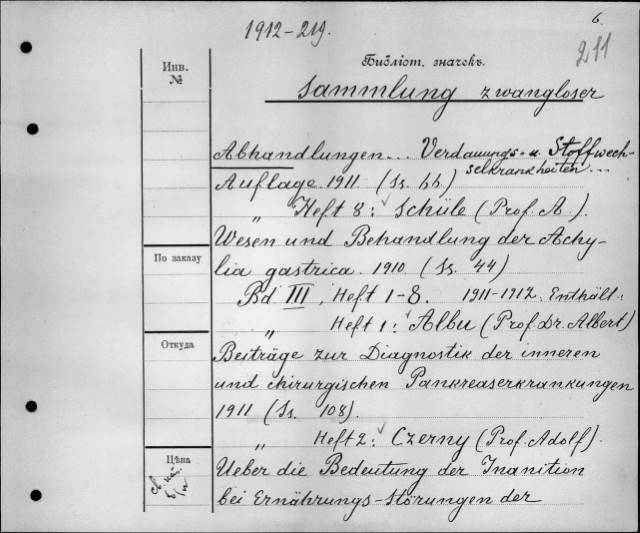 6.
1912-219.
211
Инв.
№
Библіот. значекъ.
Sammlung zwangloser
Abhandlungen... Verdauungs- u. Stoffwech-
selkrankheiten...
Auflage. 1911. (Ss. 66)
" Heft 8: Schüle (Prof. A.).
Wesen und Behandlung der Achy-
По заказу
lia gastrica. 1910. (Ss. 44)
Bd III, Heft 1-8. 1911-1912. Enthält:
" Heft 1: Albu (Prof. Dr. Albert)
Откуда
Beiträge zur Diagnostik der inneren
und chirurgischen Pankreaserkrankungen
1911 (Ss. 108).
" Heft 2: Czerny (Prof. Adolf).
Цѣна
Ueber die Bedeutung der Inanition
bei Ernährungs-Störungen der